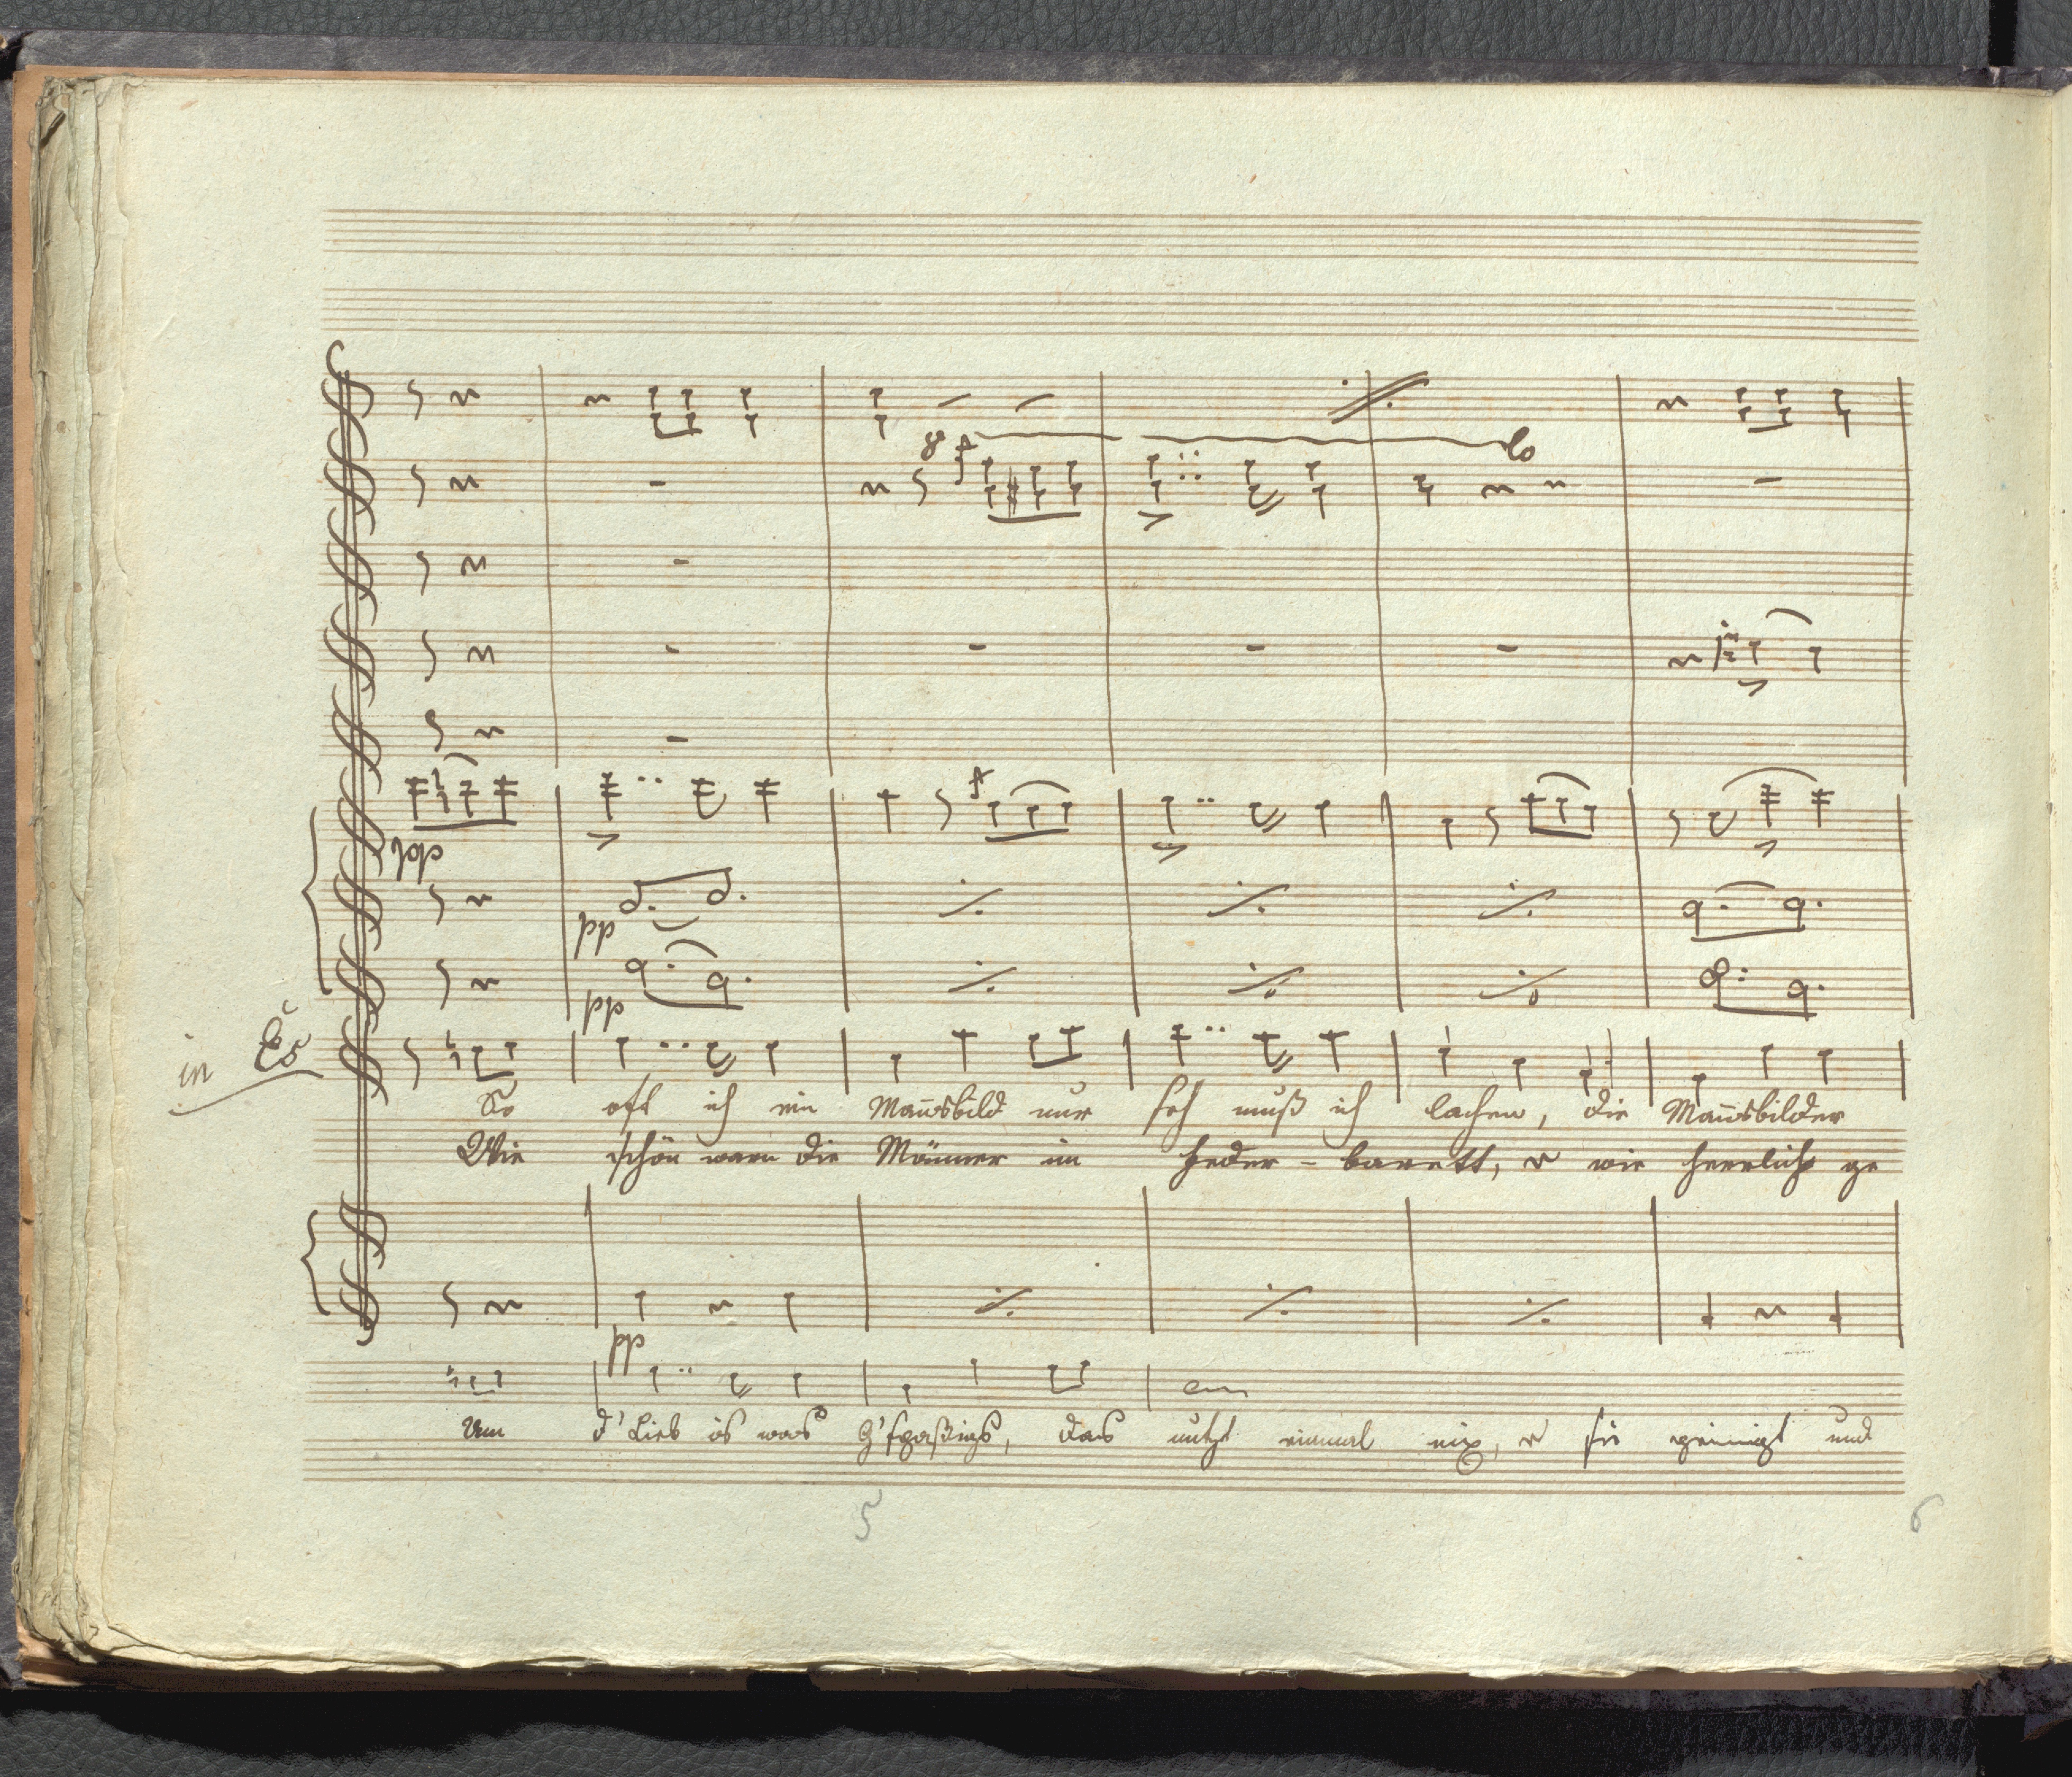 8 lo
dol
pp
pp
in Es
So oft ich ein Mansbild nur seh muß ich lachen, die Mansbilder
Wie schön warn die Männer im Feder-barett, wie herrlich ge
pp
d'Lieb is was G'spaßigs, das nutzt einmal nix, sie peinigt und
5 6